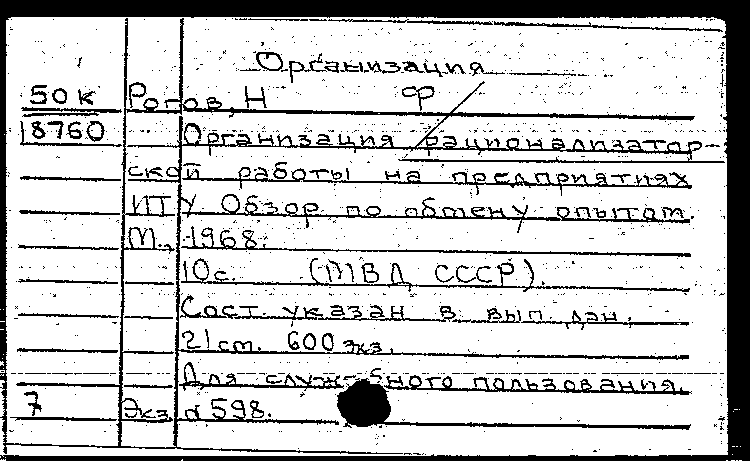 Организация
50 к Рогов, Н ср
18760 Организация рационализатор-
ской работы на предприятиях
ИТУ Обзор по обмену опытом.
М., 1968.
10с. (МВД СССР).
Сост. указан в вып. дан.
21 ст. 600 экз.
Для служебного пользования.
7 Экз 598.